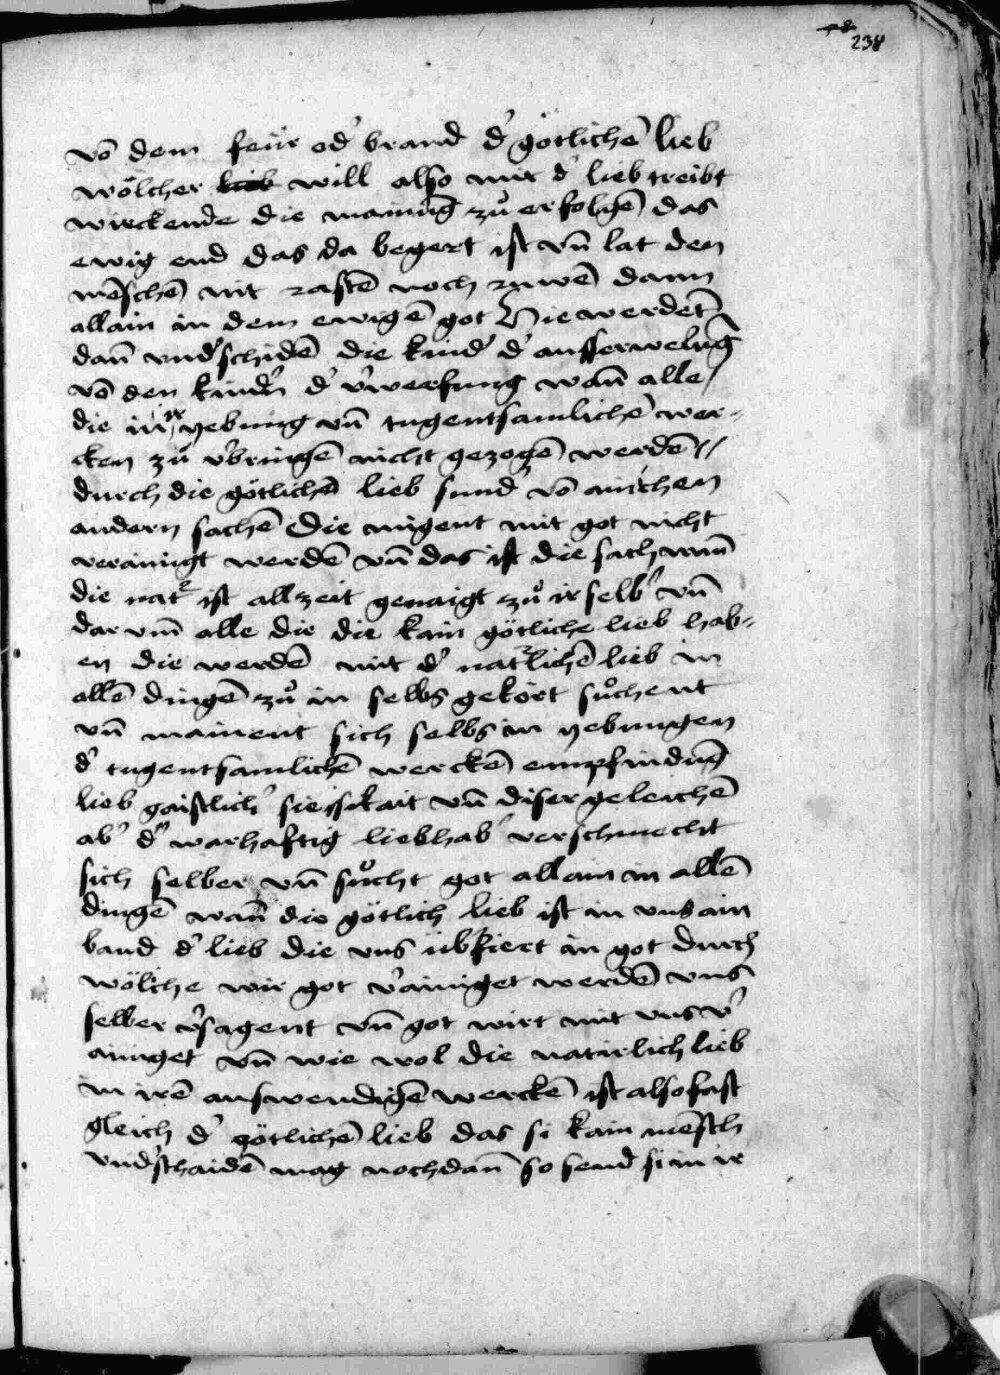 238
vō dem feür od' brand d' götlichē lieb
wölcher lieb will also mir d' lieb treibt
wirckende die mainūg zů erfolgē das
ewig end das da begert ist vn̄ lat den
mēschē nit rastē noch ruwē dann
allain in dem ewigē got Hie werdēt
dan̄ vnd'schidē die kind' d' ausserwelūg
vō den kindn̄ d' v'werfung wan̄ alle
die in yebung vn̄ tugentsamlichē wer-
cken zů v'bringē nicht gezogē werdē
durch die götlichē lieb sund' vō
andern sachē Die mügent mit got nicht
verainigt werdē vn̄ das ist die sach wan̄
die nat' ist allzeit genaigt zů ir selb' vn̄
dar vm̄ alle die die kain götliche lieb hab-
en die werdē mit d' nat'lichē lieb in
allē dingē zů in selbs gekört sůchent
vn̄ mainent sich selbs in yebungen
d' tugentsamlichē werckē empfindūg
lieb gaistlich' siessikait vn̄ diser geleichē
ab' d' warhaftig liebhab' verschmecht
sich selber vn̄ sůcht got allain in allē
dingē wan̄ die götlich lieb ist in vns ain
band d' lieb die vns übfiert in got durch
wölche wir got v'ainiget werdē vns
selber v'sagent vn̄ got wirt mit vns v'
ainiget vn̄ wie wol die natürlich lieb
in irē auswendigē werckē ist also fast
gleich d' götlichē lieb das si kain mēsch
vnd'schaidē mag nochdan̄ so send si in ir